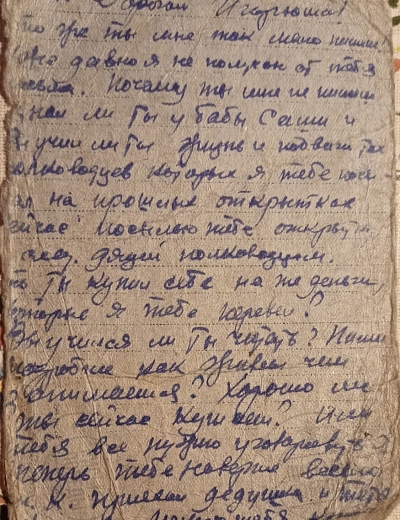 Дорогой Игорюша!
то же ты мне так мало пишешь.
же давно я не получал от тебя
письма. Почему ты мне не пишешь
ли Ты у бабы Саши и
зучил ли Ты жизнь и подвиги тех
олководцев которых я тебе посы-
ал на прошлых открытках
ейчас посылаю тебе открытку
след. дядей полководцем.
то Ты купил себе на же деньги,
оторые я тебе перевел?
Выучился ли Ты читать? Пиши
подробнее как живешь чем
занимаешься? Хорошо ли
ты сейчас кушаешь? Или
тебя все нужно уговаривать?
теперь тебе наверно весело
т. к. приехали дедушка и тетя